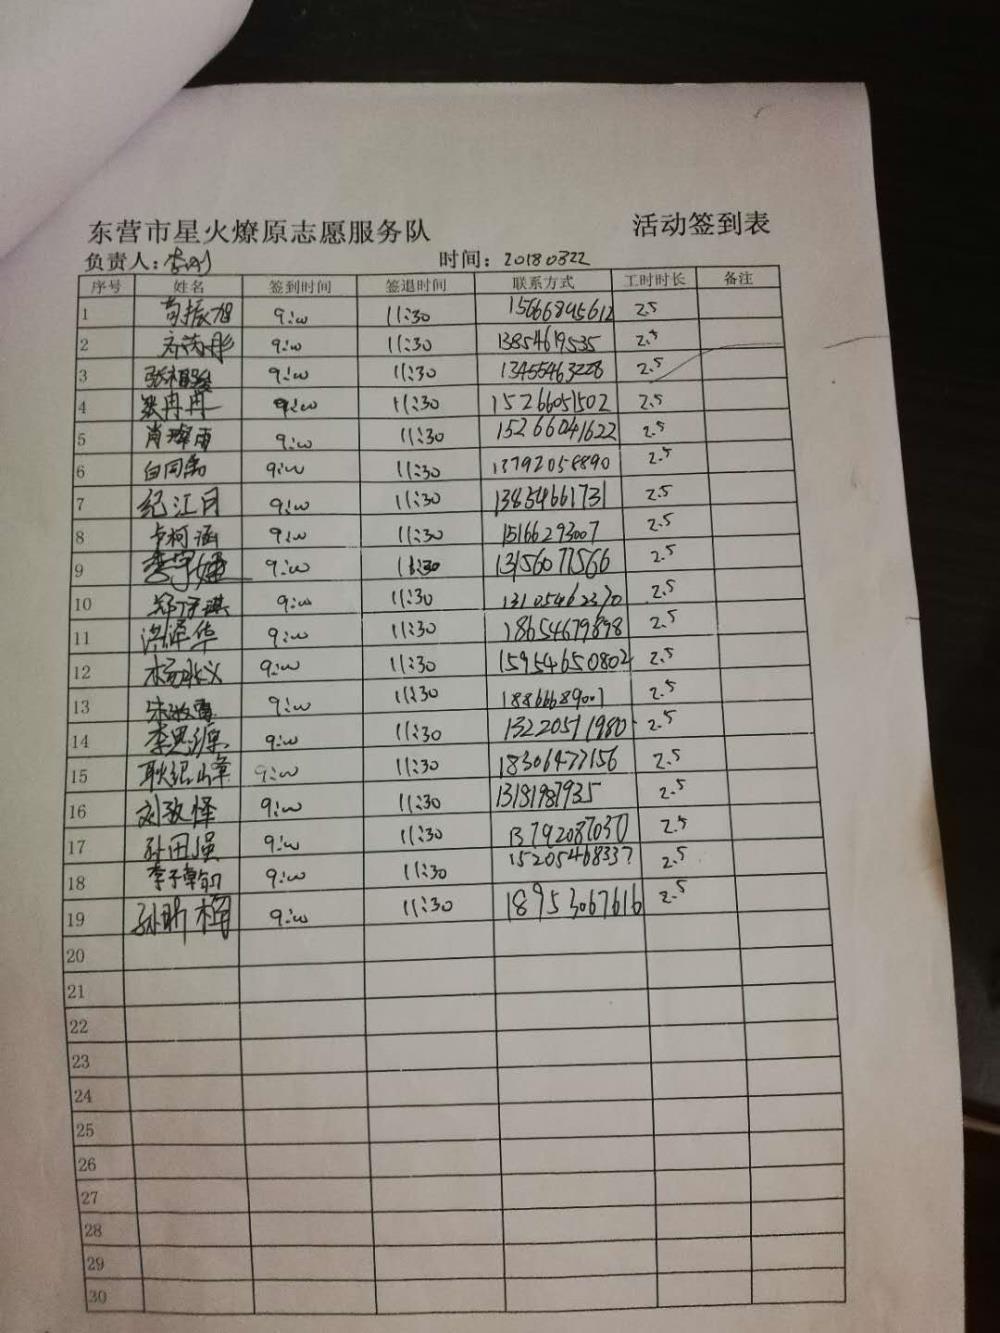 东营市星火燎原志愿服务队 活动签到表
负责人: 时间: 20180322
序号 姓名 签到时间 签退时间 联系方式 工时时长 备注
1 苟振旭 9:00 11:30 15666845612 2.5
2 9:00 11:30 13854619535 2.5
3 9:00 11:30 13455463228 2.5
4 冉冉 9:00 11:30 15266051502 2.5
5 肖 雨 9:00 11:30 15266041622 2.5
6 白同 9:00 11:30 13792058890 2.5
7 纪江月 9:00 11:30 13854661731 2.5
8 卢柯涵 9:00 11:30 15166293007 2.5
9 李宇婕 9:00 11:30 13156077566 2.5
10 郑 琪 9:00 11:30 13105462370 2.5
11 洪泽华 9:00 11:30 18654679898 2.5
12 杨 义 9:00 11:30 15954650802 2.5
13 9:00 11:30 2.5
14 李思源 9:00 11:30 13220571980 2.5
15 耿纪峰 9:00 11:30 18306477156 2.5
16 刘致怿 9:00 11:30 13181987935 2.5
17 孙田强 9:00 11:30 13792087037 2.5
18 李子 9:00 11:30 15205468337 2.5
19 孙昕梅 9:00 11:30 18953067616 2.5
20
21
22
23
24
25
26
27
28
29
30